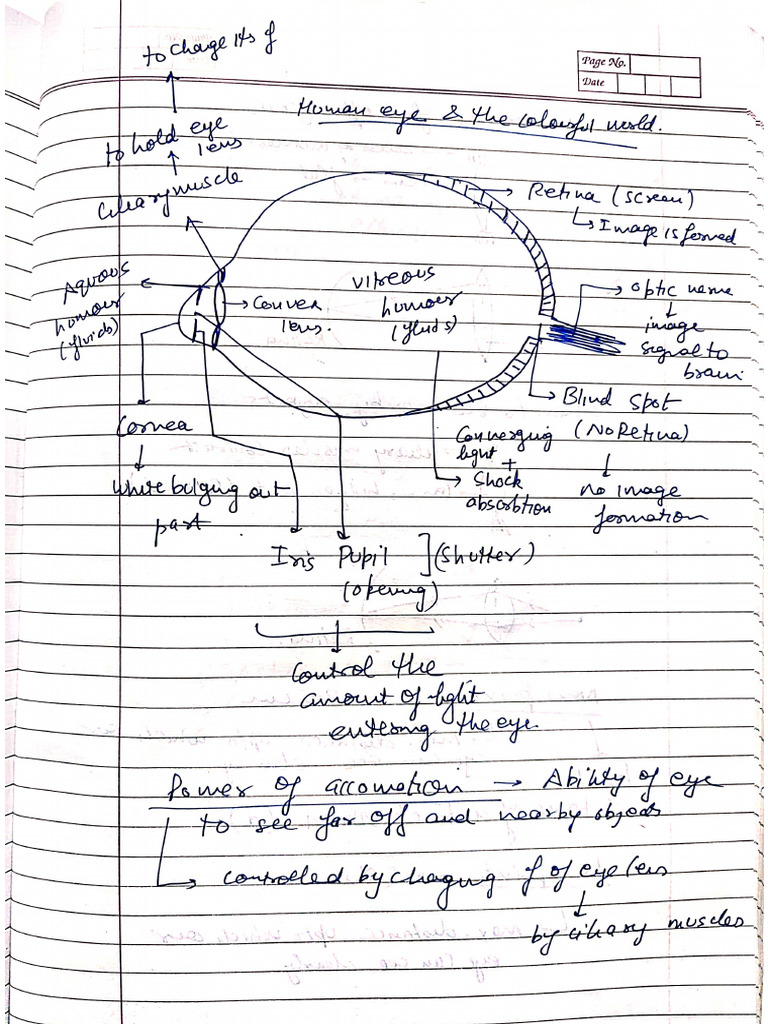 to change its f
Page No.
Date
Human eye & the colourful world.
to hold eye
lens
Ciliary muscle
Retina (screen)
Image is formed
Aqueous
humour
(fluids)
Convex
lens.
vitreous
humour
(fluids)
optic nerve
image
signal to
brain
Blind spot
(No Retina)
no image
formation
Cornea
white bulging out
part
Converging
light
+
Shock
absorbtion
Iris Pupil ](Shutter)
(opening)
Control the
amount of light
entering the eye.
Power of accomotion → Ability of eye
to see far off and nearby objects
controlled by chaging f of eye lens
by ciliary muscles